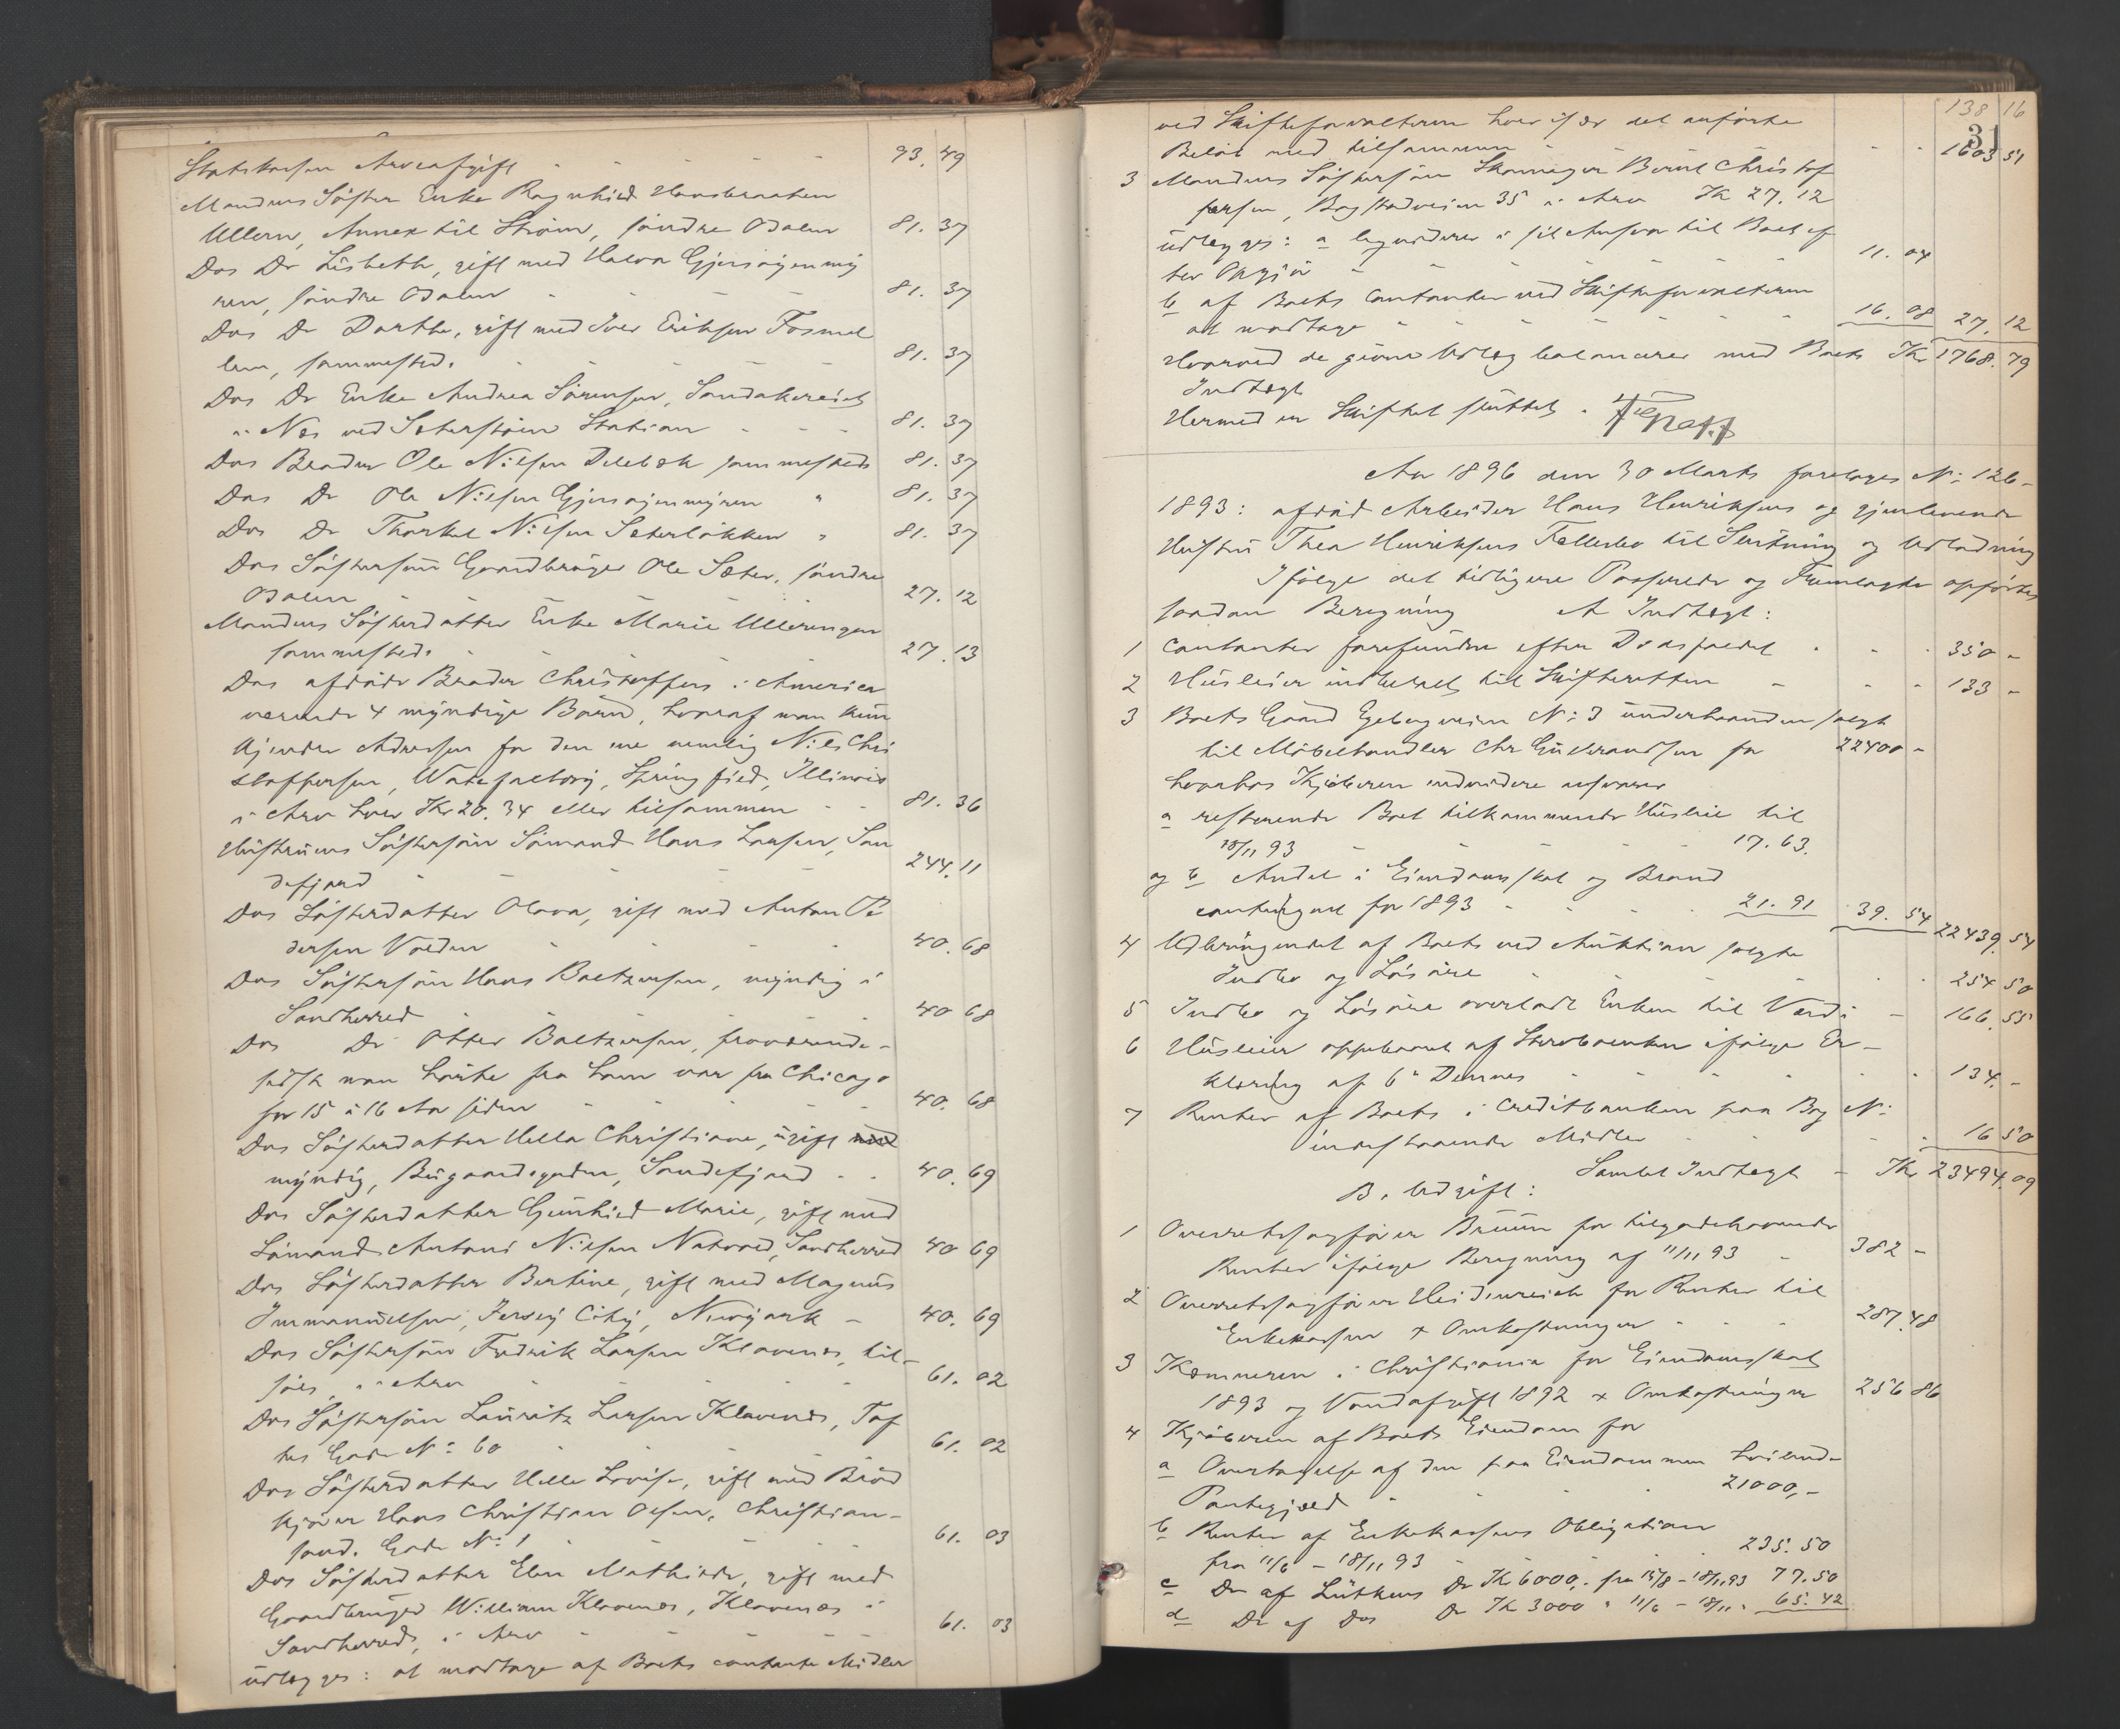 Statskassen Arveafgift - - - - - 93. 49
Mandens Søster Enke Ragnhild Hansbraaten
Ullern, Annex til Strøm, søndre Odalen 81. 37
Das Do Lisbeth, gift med Halvor Gjersøienmy
ren, søndre Odalen - - - 81. 37
Das Do Dorthe, gift med Iver Eriksen Fosmel
len, sammesteds - - - 81. 37
Das Do Enke Andrea Sørensen, Sandakereiet
i Nes ved Sæterstøen Station - - - 81. 37
Das Broder Ole Nilsen Delebæk sammesteds 81. 37
Das Do Ole Nilsen Gjersøienmyren " 81. 37
Das Do Thorkel Nilsen Sæterløkken " 81. 37
Das Søstersøn Gaardbruger Ole Sæter, søndre
Odalen - - - 27. 12
Mandens Søsterdatter Enke Marie Ulleringen
sammesteds - - - 27. 13
Das afdøde Broder Christoffers i America
værende 4 myndige Børn, hvoraf man kun
kjender Adressen for den ene nemlig Nils Chri
stoffersen, Springfied, Illinois
i Arv hver Kr 20. 34 eller tilsammen - - 81. 36
Hustruens Søstersøn Sømand Hans Larsen, San
defjord - - - 244. 11
Das Søsterdatter Olava, gift med Anton Pe
dersen Volden - - - 40. 68
Das Søstersøn Hans Baltzersen, myndig i
Sandherred - - - 40 68
Das Do Otter Baltzersen, fraværende -
sidst man hørte fra ham var fra Chicago
for 15 à 16 Aar siden - - - 40. 68
Das Søsterdatter Hella Christiane, ugift
myndig, Bugaardsgaden, Sandefjord - - 40. 69
Das Søsterdatter Gunhild Marie, gift med
Sømand Antoni Nilsen Natvold, Sandherred 40 69
Das Søsterdatter Bertine, gift med Magnus
Immanuelsen, Jersey City, Newyork - 40. 69
Das Søstersøn Fredrik Larsen Klavenes, til-
søes, i Arv - - - 61. 02
Das Søstersøn Lauritz Larsen Klavenes, Tof
tes Gade No 60 - - - 61. 02
Das Søsterdatter Helle Lovise, gift med Brød
kjører Hans Christian Olsen, Christian-
sand. Gade No 1 - - - 61. 03
Das Søsterdatter Elen Mathilde, gift med
Gaardbruger William Klavenes, Klavenes i
Sandherred, i Arv - - - 61. 03
udlægges: at modtage af Boets contante Midler
138 16
31
ved Skifteforvalteren hver især det anførte
Beløb med tilsammen - - - 1603 51
3 Mandens Søstersøn Skomager Bernt Christof
fersen, Bogstadveien 35 i Arv Kr 27. 12
udlægges: a liqviderer i sit Ansvar til Boet ef
ter Opgjør - - - 11. 04
b af Boets Contanter ved Skifteforvalteren
at modtage - - - 16. 08 27. 12
Hvorved de givne Udlæg balancerer med Boets Kr 1768. 79
Indtægt
Hermed er Skiftet sluttet.
Aar 1896 den 30 Marts foretoges No 126-
1893: afdød Arbeider Hans Henriksens og gjenlevende
Hustru Thea Henriksens Fællesbo til Slutning og Udlodning
Ifølge det tidligere Passerede og Fremlagte opførtes
saadan Beregning A Indtægt:
1 Contanter forefundne efter Dødsfaldet - - - 350 -
2 Husleier indbetalt til Skifteretten - - - 133 -
3 Boets Gaard Egebergveien No 3 underhaanden solgt
til Møbelhandler Chr Gulbrandsen for 22400 -
hvorhos Kjøberen endvidere udsvarer
a resterende Boet tilkommende Husleie til
18/11 93 - - - 17. 63.
og b Andel i Eiendomsskat og Brand
contingent for 1893 - - - 21. 91 39. 54 22439. 54
4 Udbringendet af Boets ved Auktion solgte
Indbo og Løsøre - - - 254 50
5 Indbo og Løsøre overladt Enken til Værdi - 166. 55
6 Husleier oppebaaret af Sterboenken ifølge Er-
klæring af 6te Dennes - - - 134. -
7 Renter af Boets i Creditbanken paa Bog No
indestaaende Midler - - - 16 50
Samlet Indtægt - Kr 23494. 09
B. Udgift:
1 Overretssagfører Bruun for tilgodehavende
Renter ifølge Beregning af 11/11 93 - 382 -
2 Overretssagfører Heidenreich for Renter til
Enkekassen + Omkostninger - - - 287. 48
3 Kæmneren i Christiania for Eiendomsskat
1893 og Vandafgift 1892 + Omkostninger 256 86
4 Kjøberen af Boets Eiendom for
a Overtagelse af den paa Eiendommen hvilende
Pantegjæld - - - 21000,-
b Renter af Enkekassens Obligation
fra 11/6 - 18/11 93 - 235. 50
c Do af Lütkens Do Kr 6000,- fra 15/8 - 18/11 93 77. 50
d Do af Das Do Kr 3000 " 11/6 - 18/11 " 65. 42